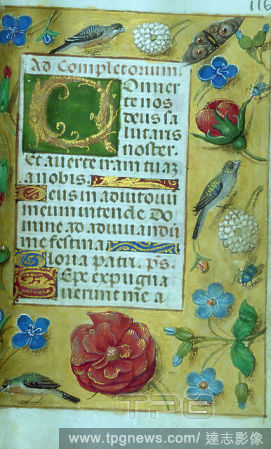 116
Ad Completorium.
Conuer
te nos
deus sa
lutaris
noster.
Et auerte iram tuā
a nobis.
Deus in adiutoriū
meum intende Do
mine ad adiuuandū
me festina
Gloria patri, ps.
Sepe expugna
uerunt me a
TPG
www.tpgnews.com/達志影像